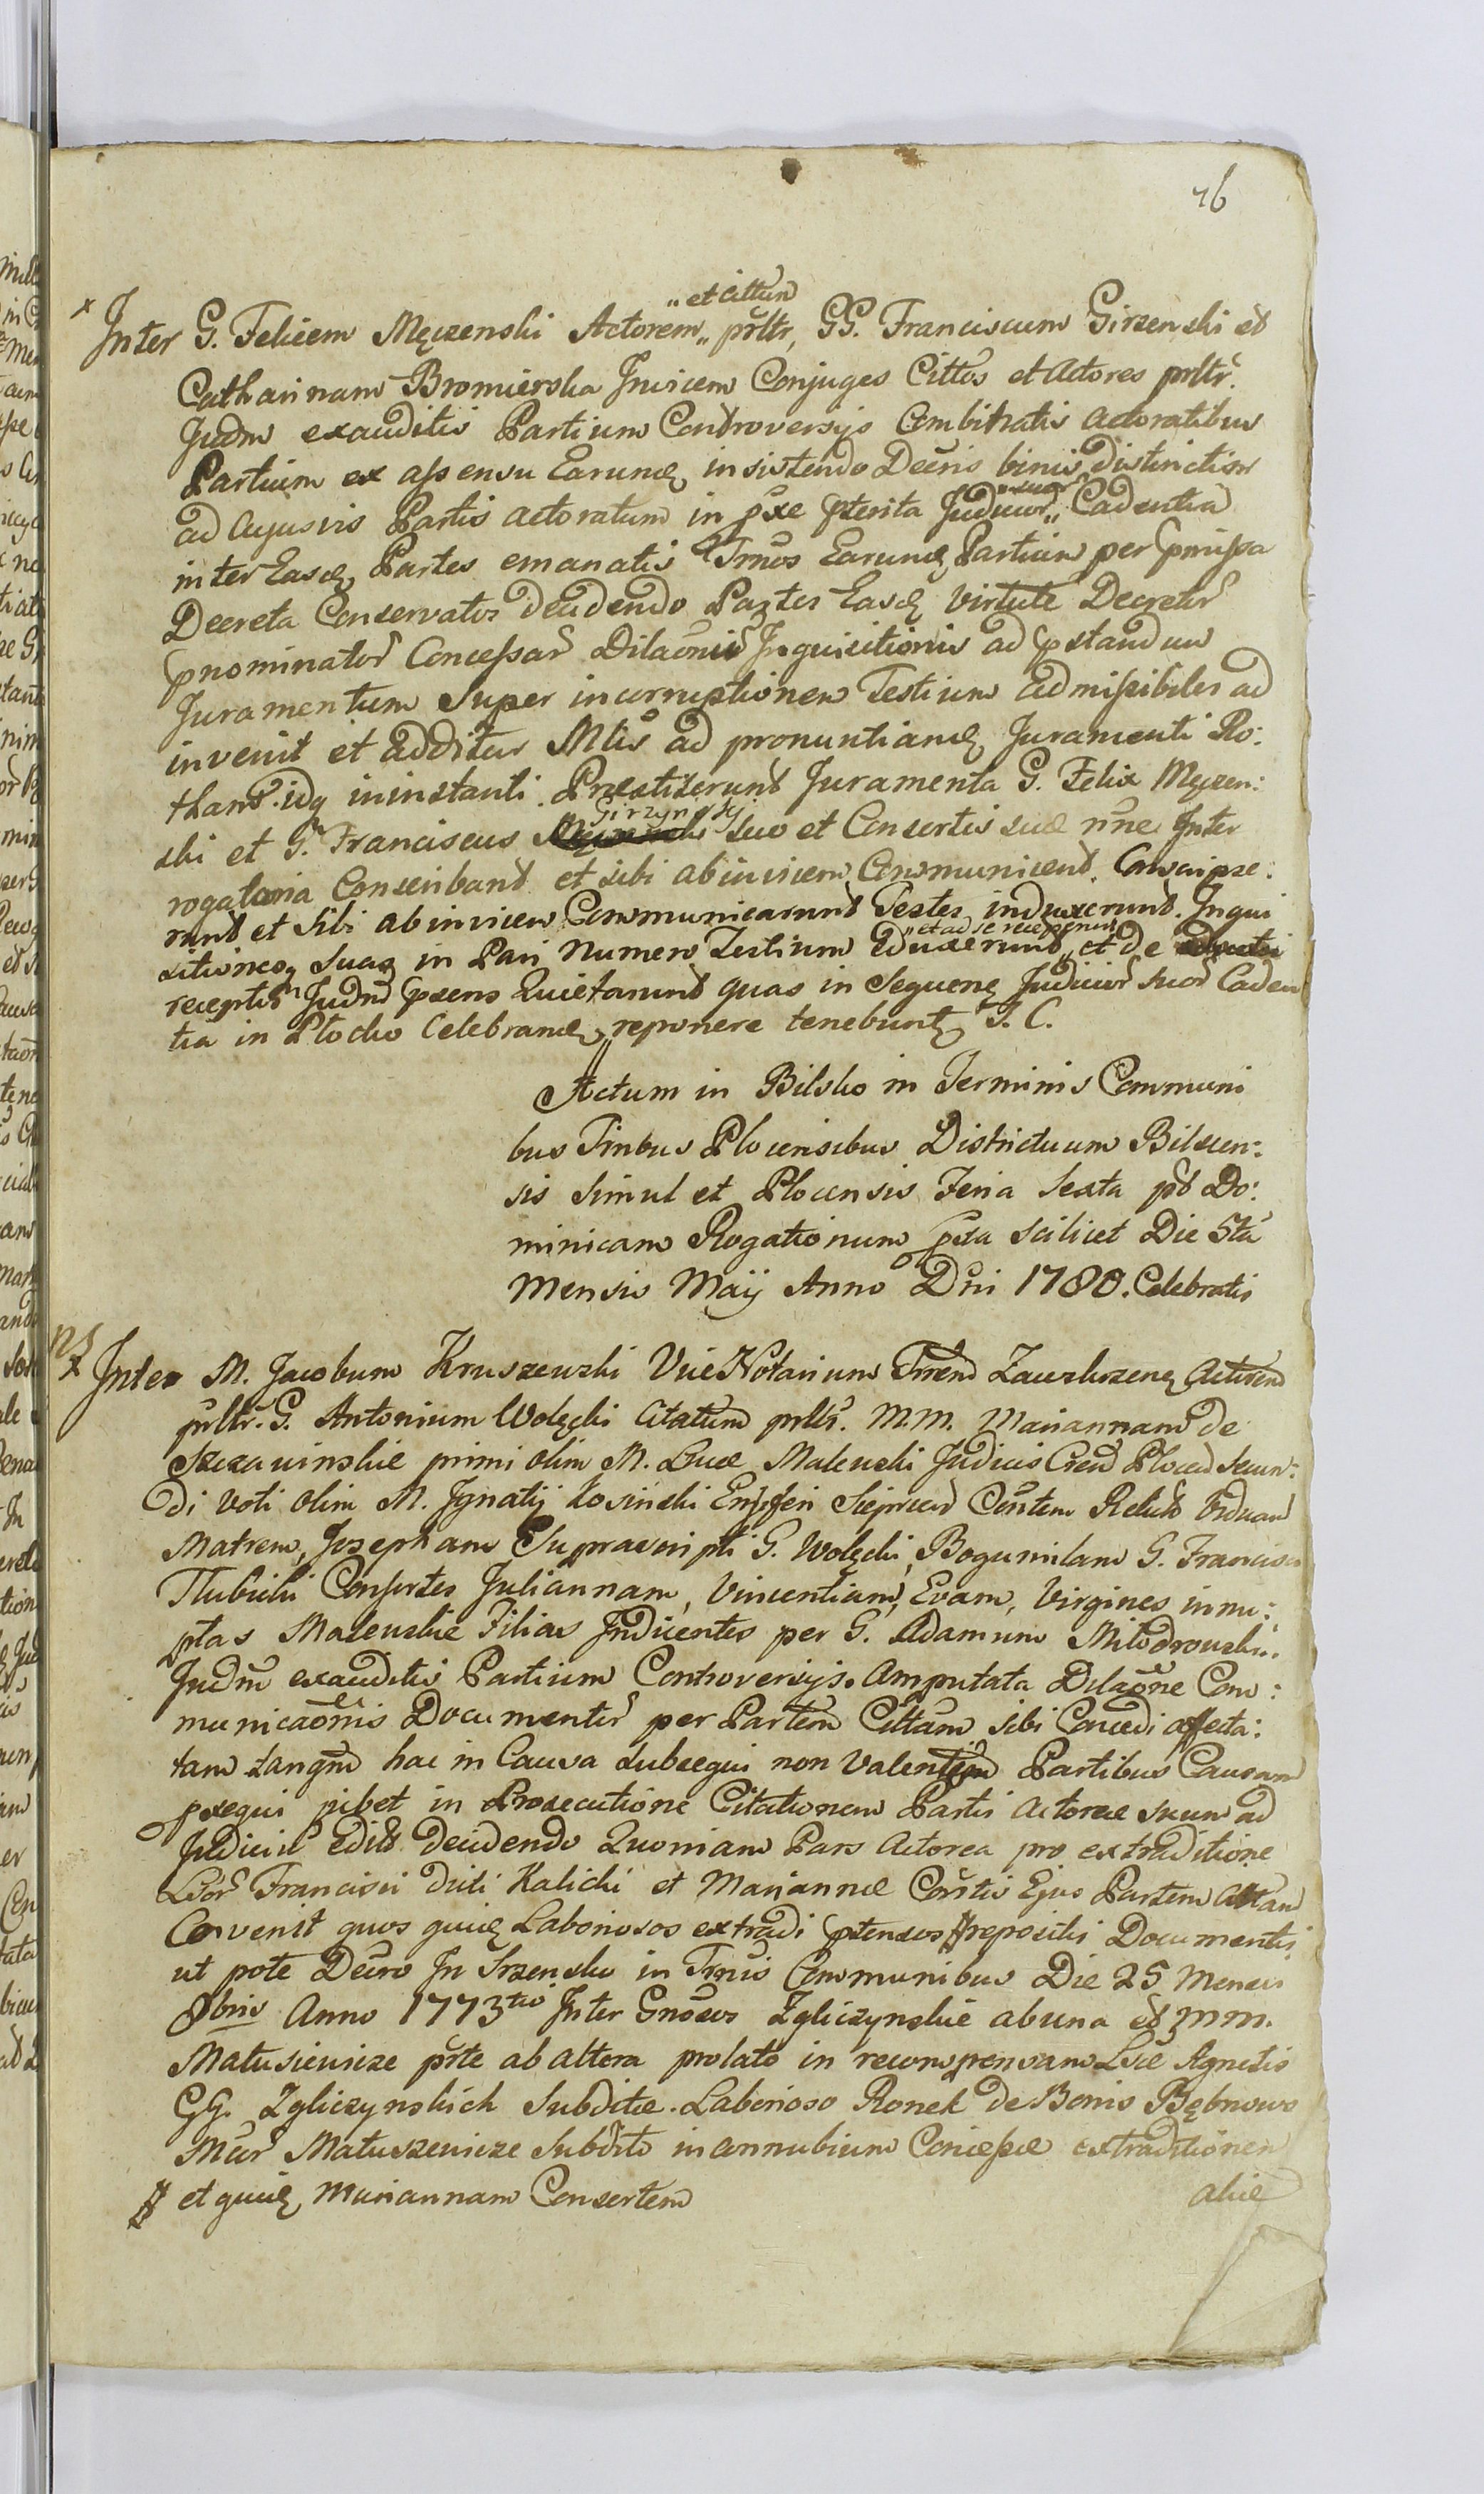 76
x Inter G. Felicem Męczenski Actorem „et Cittum„ prltr, GG. Franciscum Girzenski et
Catharinam Bromierska Invicem Conjuges Cittos et Actores prltr.
Judm exauditis Partium Controversijs Combinatis actoratibus
Partium ex assensu Earundę insistendo Decris binis distinctim
ad cujusvis Partis actoratum in pxe pterita Judicior „suor„ Cadentia
inter Easdę Partes emanatis Trnos Earundę Partium per pmissa
Decreta Conservatos decidendo Partes Easdę virtute Decretor
pnominator Concessar Dilaonis Inquisitionis ad pstandum
Juramentum super incorruptionem Testium admissibiles ad
invenit et additur Mlis ad pronuntiandę Juramenti Ro:
tham. idq ininstanti Praestiterunt Juramenta G. Felix Męczen:
ski et G. Franciscus Girzynskj suo et Consortis suae nne Inter
rogatoria Conscribant et sibi abinvicem Communicent. Conscripse:
runt et sibi abinvicem Communicarunt Testes induxerunt. Inqui
sitionesq suas in Pari Numero Testium eduxerunt „et ad se receperunt„ et de
receptis Judm psens Quietarunt quas in Sequenę Judicior suor Caden
tia in Plocko Celebrandę reponere tenebuntę J. C.
Actum in Bilsko in Terminis Communi
bus Trnbus Plocensibus Districtuum Bilscen:
sis simul et Plocensis Feria Sexta pt Do:
minicam Rogationum pxa scilicet Die 5ta
Mensis Maij Anno Dni 1780. Celebratis
NS
x Inter M. Jacobum Kruszewski Vice Notarium Trren Zawskrzenę Actorem
prltr. G. Antonium Wolęcki Citatum prltr. M.M. Mariannam de
Szczawinskie primi olim M. Lucae Malewski Judicis Cren Plocen secun:
di voti olim M. Ignatij Kosinski Ensiferi Sieprcen Contem Relict viduam
Matrem, Josepham Suprascripti G. Wolęcki, Bogumilam G. Francisci
Tlubicki Consortes Juliannam, Vincentiam, Evam, Virgines innu:
ptas Malewskie Filias Indicentes per G. Adamum Milodrowski.
Judm exauditis Partium Controversijs. Amputata Dilaone Com:
municaonis Documentor per Partem Cittam sibi Concedi affecta:
tam tanqm hac in Causa subsequi non valentem Partibus Causam
pxequi jubet in Prosecutione Citationem Partis Actoreae suum ad
Judiciu edit decidendo Quoniam Pars Actorea pro extraditione
Lsor Francisci dicti Kalicki et Mariannae Constis Ejus Partem Cittam
Convenit quos quidę Laboriosos extradi ptensos # repositis Documentis
ut pote Decro In Srzensko in Trnis Communibus Die 25 Mensis
8bris Anno 1773tio Inter Gnosos Zgliczynskie abuna et MM.
Matusiewicze prte ab altera prolato in recompensam Lsae Agnetis
GG. Zgliczynskich Subditae. Laborioso Ronek de Bonis Bębnowo
Mcor Matuszewicze Subdito in connubium Concessae extraditionem
# et quidę Mariannam Consortem
aliae